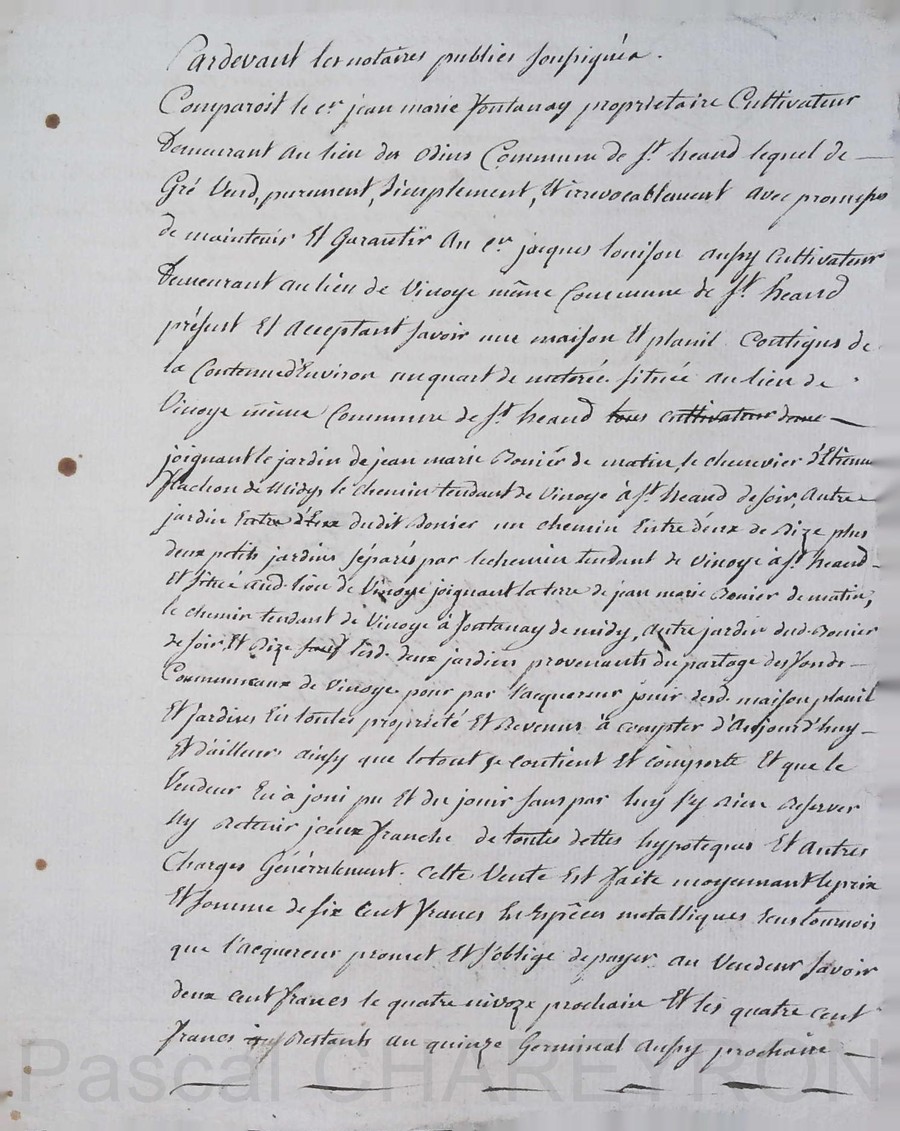 Pardevant les notaires publics soussignés.
Comparoit le cen jean marie fontanay proprietaire Cultivateur
Demeurant au lieu des odins Commune de st heand lequel de
Gré Vend, purement, simplement, Et irrevocablement avec promesse
de maintenir Et Garantir Au cen jacques louison aussy Cultivateur
Demeurant au lieu de Vinoye même Commune de st heand
présent Et acceptant savoir une maison Et planil Contigus de
la Contenue d'Environ un quart de meterée située au lieu de
Vinoye même Commune de st heand
joignant le jardin de jean marie Bonier de matin, le chenevier d'Etienne
flachon de Midy, le chemin tendant de Vinoye à st heand de soir, autre
jardin dudit Bonier un chemin Entre d'eux de Bize plus
deux petits jardins séparés par le chemin tendant de Vinoye à st heand
Et situé aud. lieu de Vinoye joignant la terre de jean marie Bonier de matin,
le chemin tendant de Vinoye à fontanay de midy, autre jardin dud. Bonier
de soir Et Bize lesd. deux jardins provenants du partage des fonds
Communeaux de Vinoye pour par l'acquereur jouir desd. maison planil
Et jardins En toutes proprieté Et Revenus à compter d'Aujourd'huy
Et d'ailleurs ainsy que le tout se contient Et comporte Et que le
Vendeur En a joui pu Et du jouir sans par luy s'y Rien Reserver
ny Retenir jceux franche de toutes dettes hypoteques Et autres
Charges Généralement. Cette Vente Est faite moyennant le prix
Et somme de six Cent francs En Espêces metalliques tournois
que l'acquereur promet Et s'oblige de payer au Vendeur savoir
deux cent francs le quatre nivoze prochain Et les quatre cent
francs Restants au quinze Germinal aussy prochain
Pascal CHAREYRON